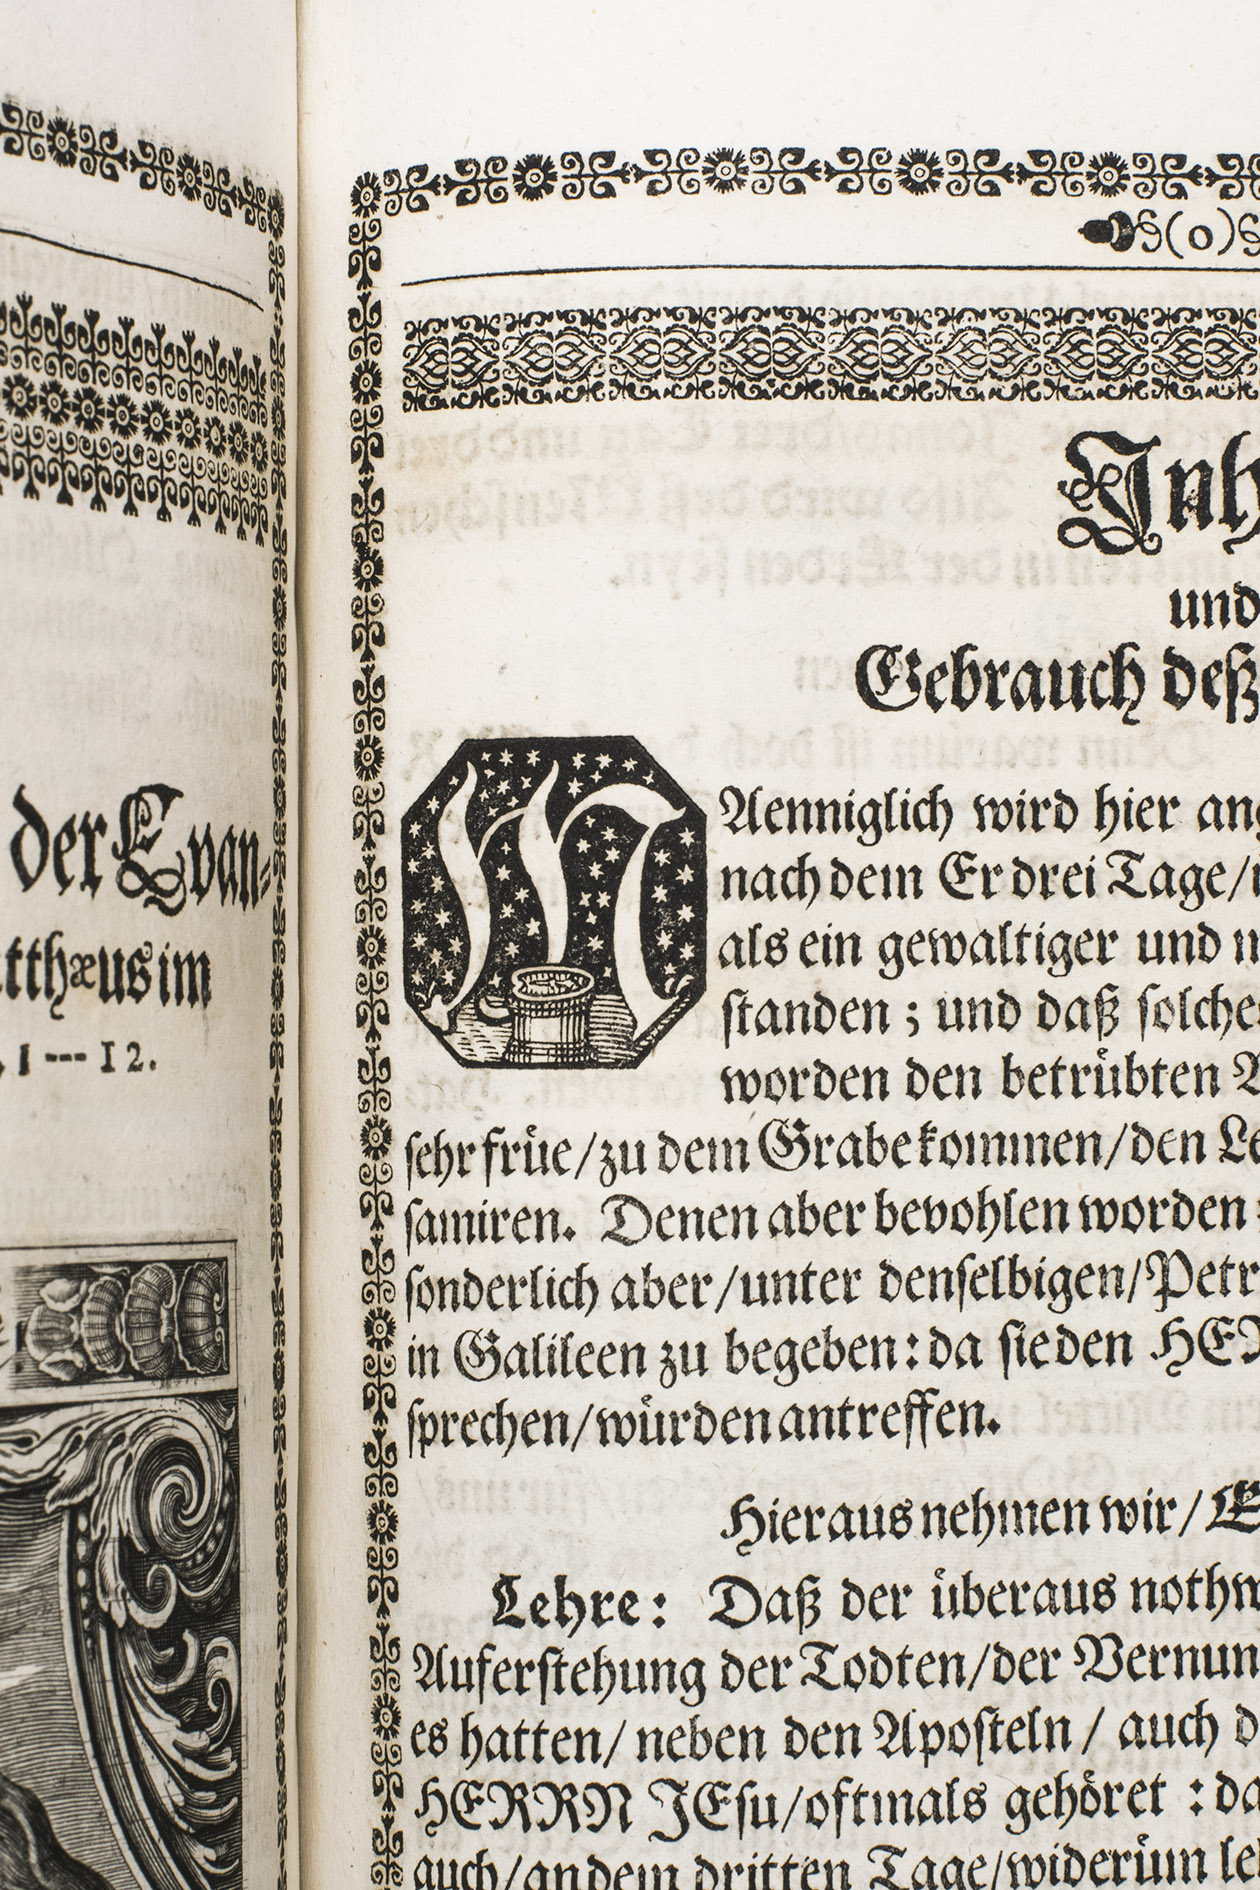 der Evan-
tthæus im
, 1 --- 12.
(o)
Inh
und
Gebrauch deß
MAenniglich wird hier ang
nach dem Er drei Tage/
als ein gewaltiger und
standen ; und daß solche
worden den betrübten
sehr früe/zu dem Grabe kommen/den Le
samiren. Denen aber bevohlen worden:
sonderlich aber/unter denselbigen/Petr
in Galileen zu begeben: da sie den HER
sprechen/würden antreffen.
Hieraus nehmen wir/ E
Lehre: Daß der überaus nothw
Auferstehung der Todten/der Vernun
es hatten/ neben den Aposteln / auch d
HERRN JEsu/oftmals gehöret : da
auch/an dem dritten Tage/widerüm le